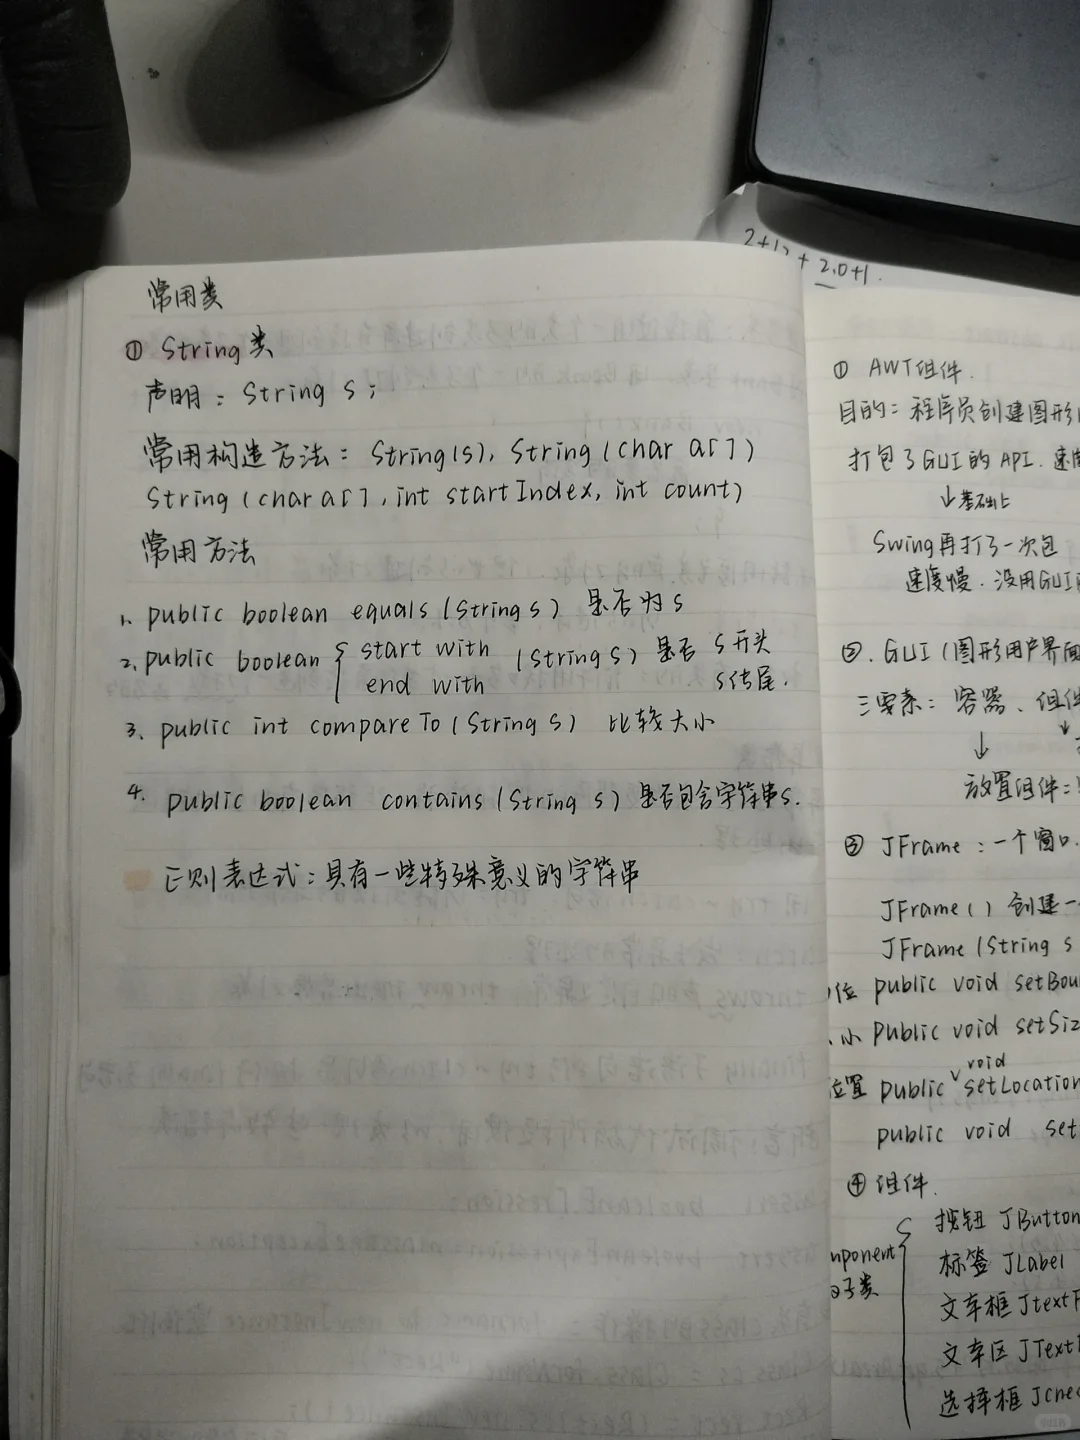 2+1
+ 2.0+1.
常用类
① String类
声明：String s；
常用构造方法：String(s), String (char a[])
String (char a[], int startIndex, int count)
常用方法
1. public boolean equals (String s) 是否为s
2. public boolean { start with (String s) 是否 s开头
end with s结尾.
3. public int compareTo (String s) 比较大小
4. public boolean contains (String s) 是否包含字符串s.
正则表达式：具有一些特殊意义的字符串
① AWT组件.
目的：程序员创建图形
打包了GUI的API. 速
↓基础上
Swing再打了一次包
速度慢. 没用GUI
②. GUI (图形用户界面
三要素：容器、组件
↓ ↓
放置组件：
③ JFrame：一个窗口.
JFrame() 创建一
JFrame (String s
位 public void setBou
小 public void setSiz
位置 public ∨ setLocation
void
public void set
④ 组件.
mponent
子类
{ 按钮 JButton
标签 JLabel
文本框 JtextF
文本区 JText
选择框 Jche
小红书